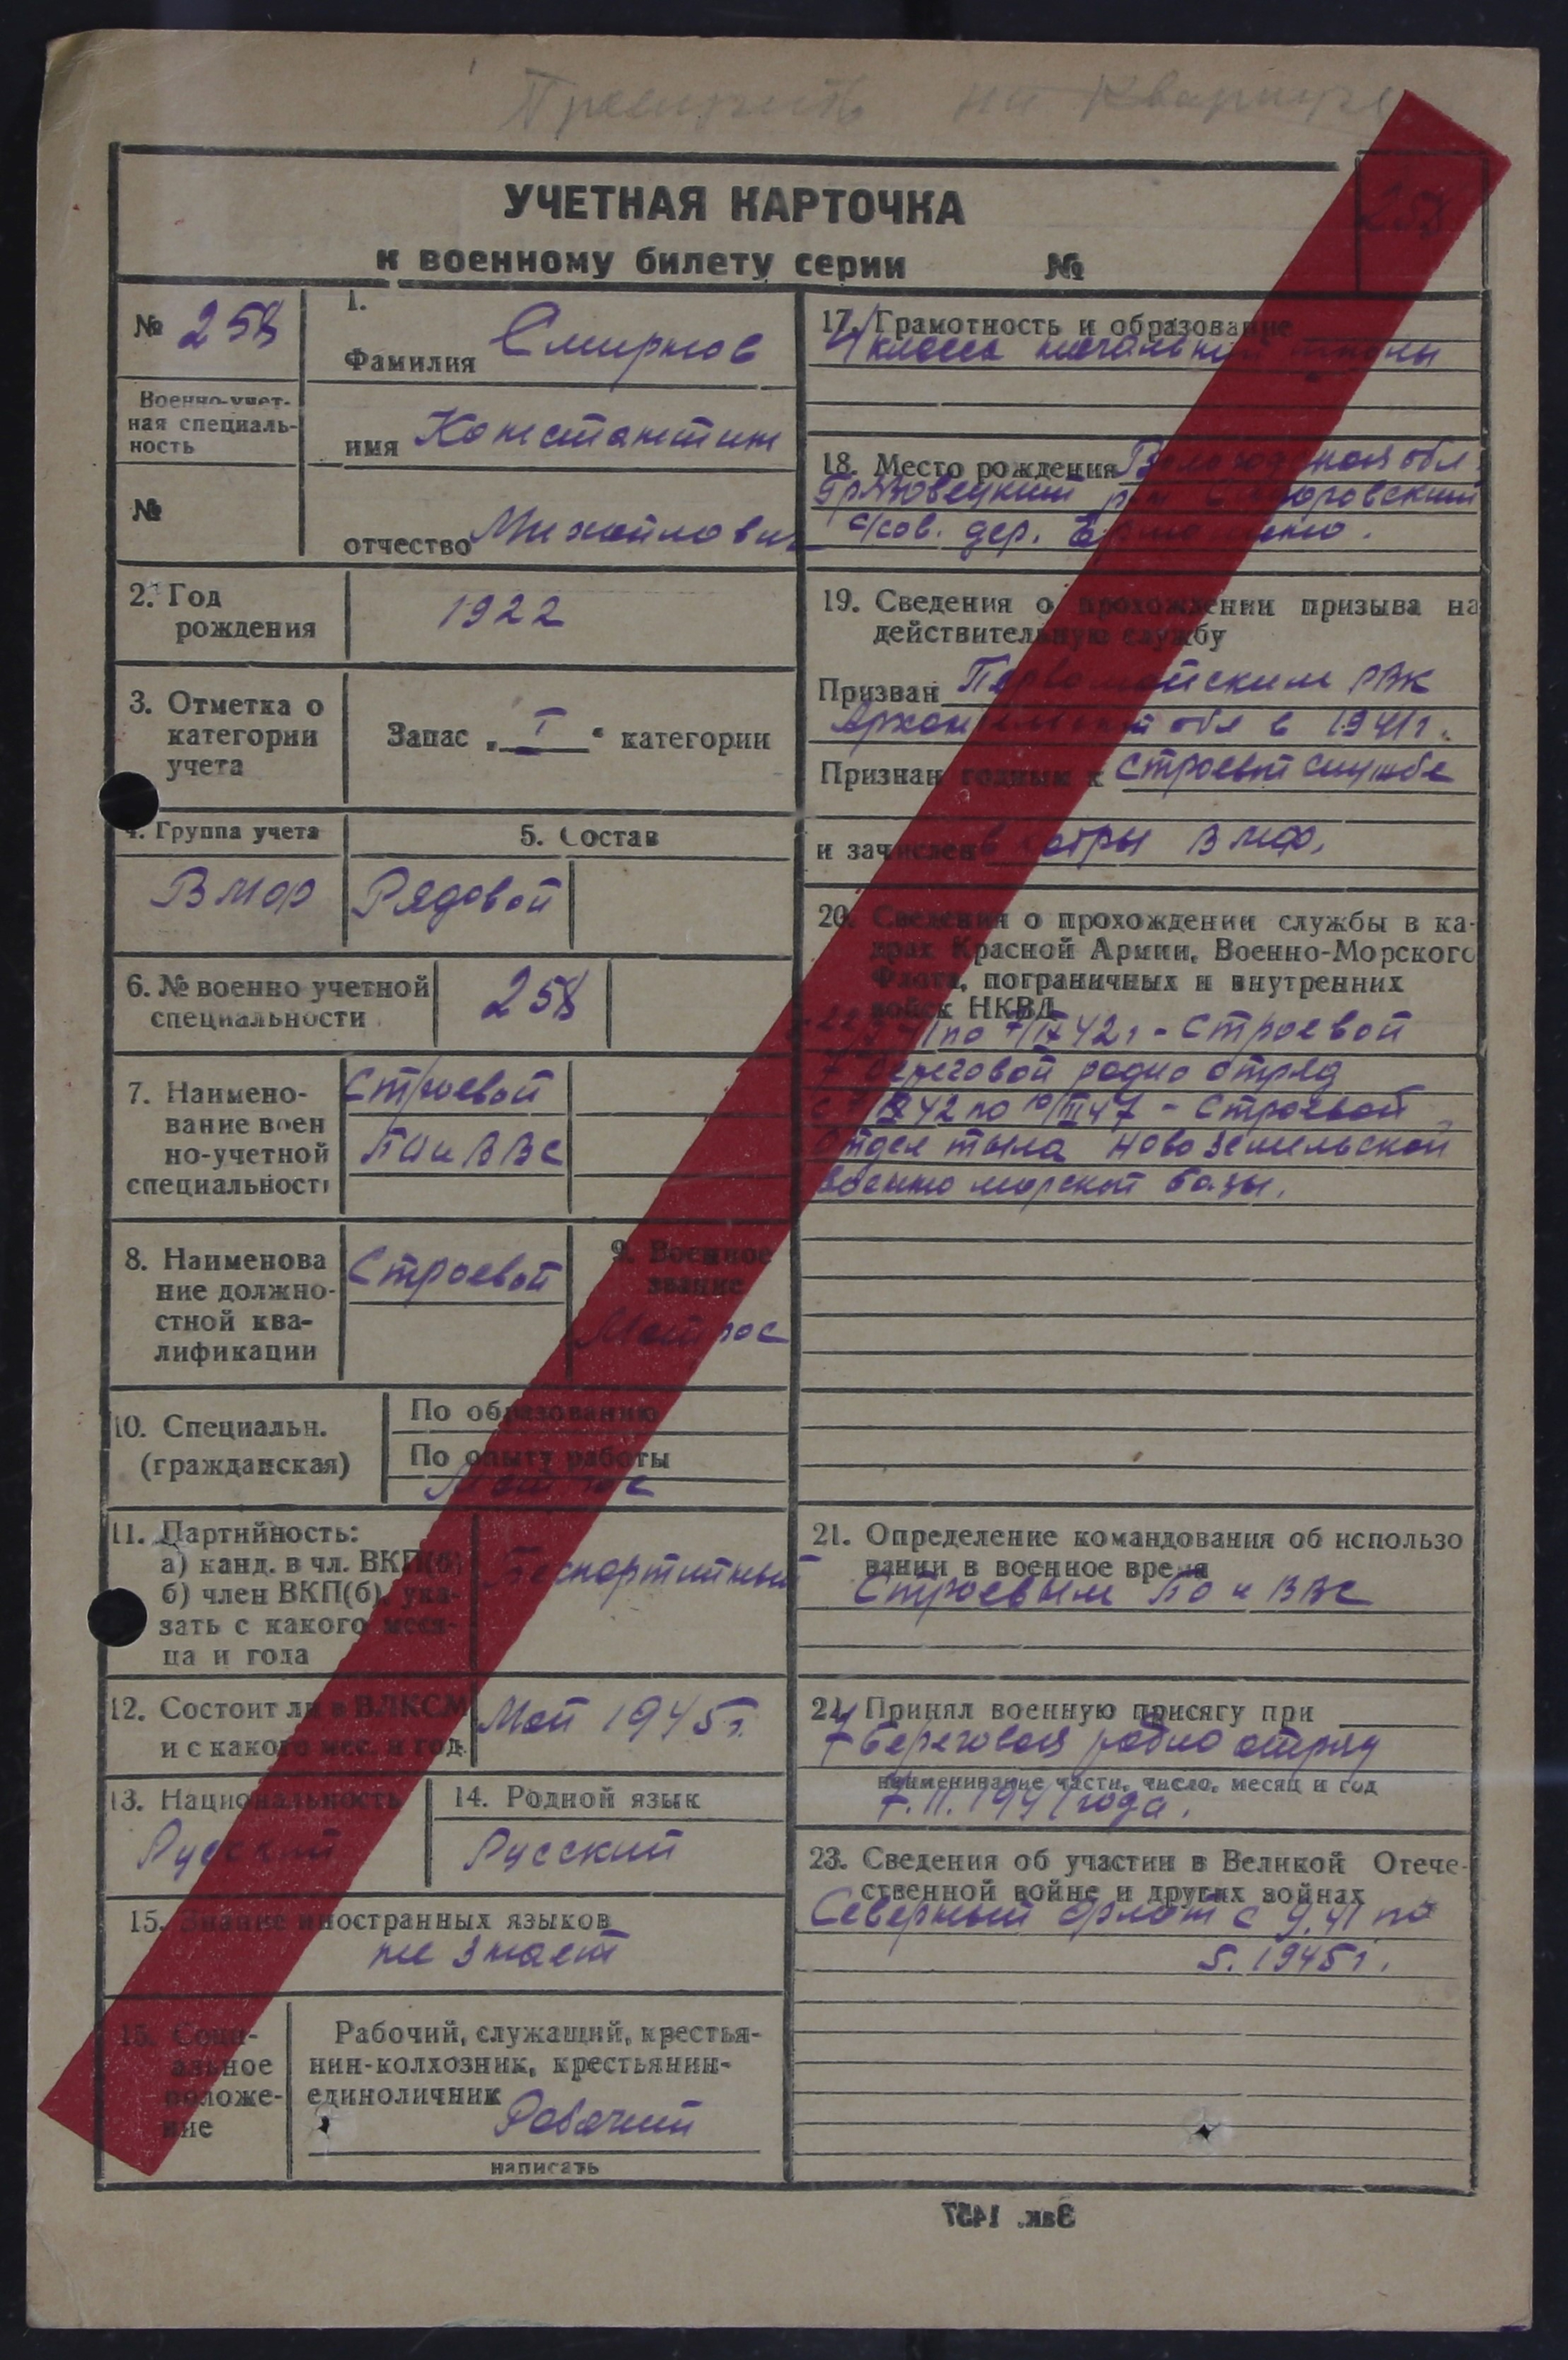 на
УЧЕТНАЯ КАРТОЧКА
к военному билету серии №
258
№ 258
Военно-учет-
ная специаль-
ность
№
1.
Фамилия Смирнов
имя Константин
отчество Михайлович
2. Год
рождения
1922
3. Отметка о
категории
учета
Запас „ I “ категории
4. Группа учета
ВМФ
5. Состав
Рядовой
6. № военно учетной
специальности
258
7. Наимено-
вание воен
но-учетной
специальности
Строевой
ПО и ВВС
8. Наименова
ние должно-
стной ква-
лификации
Строевой
9. Военное
звание
Матрос
10. Специальн.
(гражданская)
По образованию
По опыту работы
Матрос
11. Партийность:
а) канд. в чл. ВКП(б)
б) член ВКП(б), ука-
зать с какого меся-
ца и года
Беспартийный
12. Состоит ли в ВЛКСМ
и с какого мес. и год.
Май 1945 г.
13. Национальность
Русский
14. Родной язык
Русский
15. Знание иностранных языков
не знает
15. Соци-
альное
положе-
ние
Рабочий, служащий, крестья-
нин-колхозник, крестьянин-
единоличник
Рабочий
написать
17. Грамотность и образование
4 класса начальной школы
18. Место рождения Вологодская обл
Грязовецкий р-н
с/сов. дер.
19. Сведения о прохождении призыва на
действительную службу
Призван Первомайским РВК
Архангельской обл в 1941 г.
Признан годным к строевой службе
и зачислен в кадры ВМФ.
20. Сведения о прохождении службы в ка-
драх Красной Армии, Военно-Морского
Флота, пограничных и внутренних
войск НКВД
по 7/IX 42 г - Строевой
7 Береговой радио отряд
с 7/IX 42 по 10/III 47 - Строевой
Отдел тыла Новоземельской
военно морской базы.
21. Определение командования об использо
вании в военное время
Строевым ПО и ВВС
22. Принял военную присягу при
7 Береговая радио отряд
наименивание части, число, месяц и год
7. 11. 1941 года.
23. Сведения об участии в Великой Отече-
ственной войне и других войнах
Северный флот с 9. 41 по
5. 1945 г.
Зак. 1457